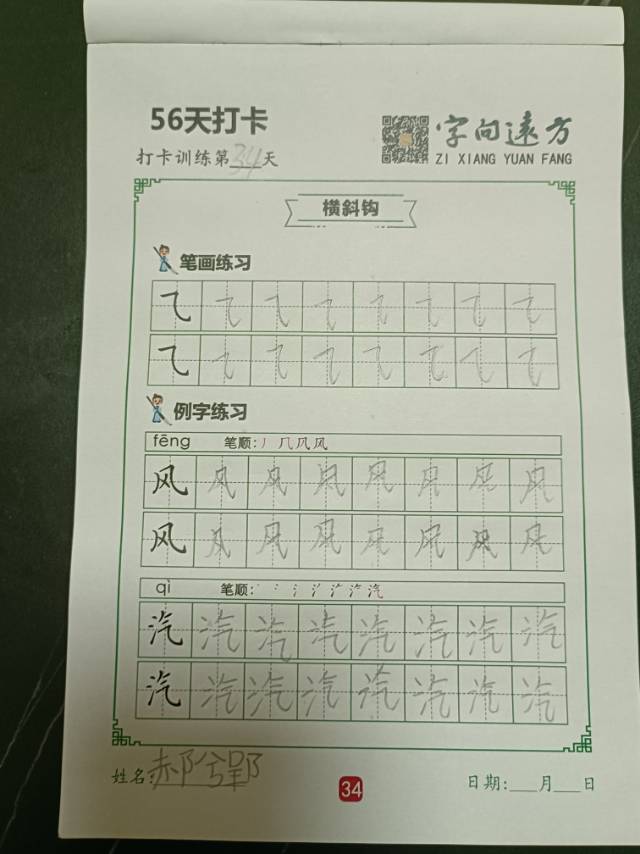 56天打卡
字向远方
打卡训练第34天
ZI XIANG YUAN FANG
横斜钩
笔画练习
⺄ ⺄ ⺄ ⺄ ⺄ ⺄ ⺄ ⺄
⺄ ⺄ ⺄ ⺄ ⺄ ⺄ ⺄ ⺄
例字练习
fēng 笔顺:丿 几 风 风
风 风 风 风 风 风 风 风
风 风 风 风 风 风 风 风
qì 笔顺:
汽 汽 汽 汽 汽 汽 汽 汽
汽 汽 汽 汽 汽 汽 汽 汽
姓名:郝兮郢
34
日期:___月___日